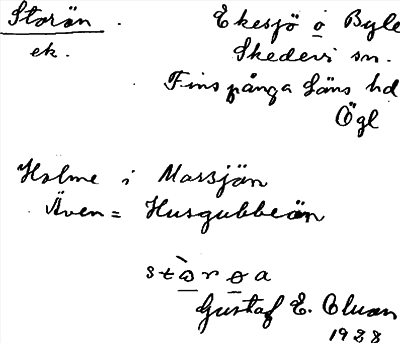 Storön . Ekesjö o Byle
ek. Skedevi sn.
Finspånga läns hd
Ögl
Holme i Mossjön
Även = Husgubbeön
stɷ̀rɵa
Gustaf E.
1928